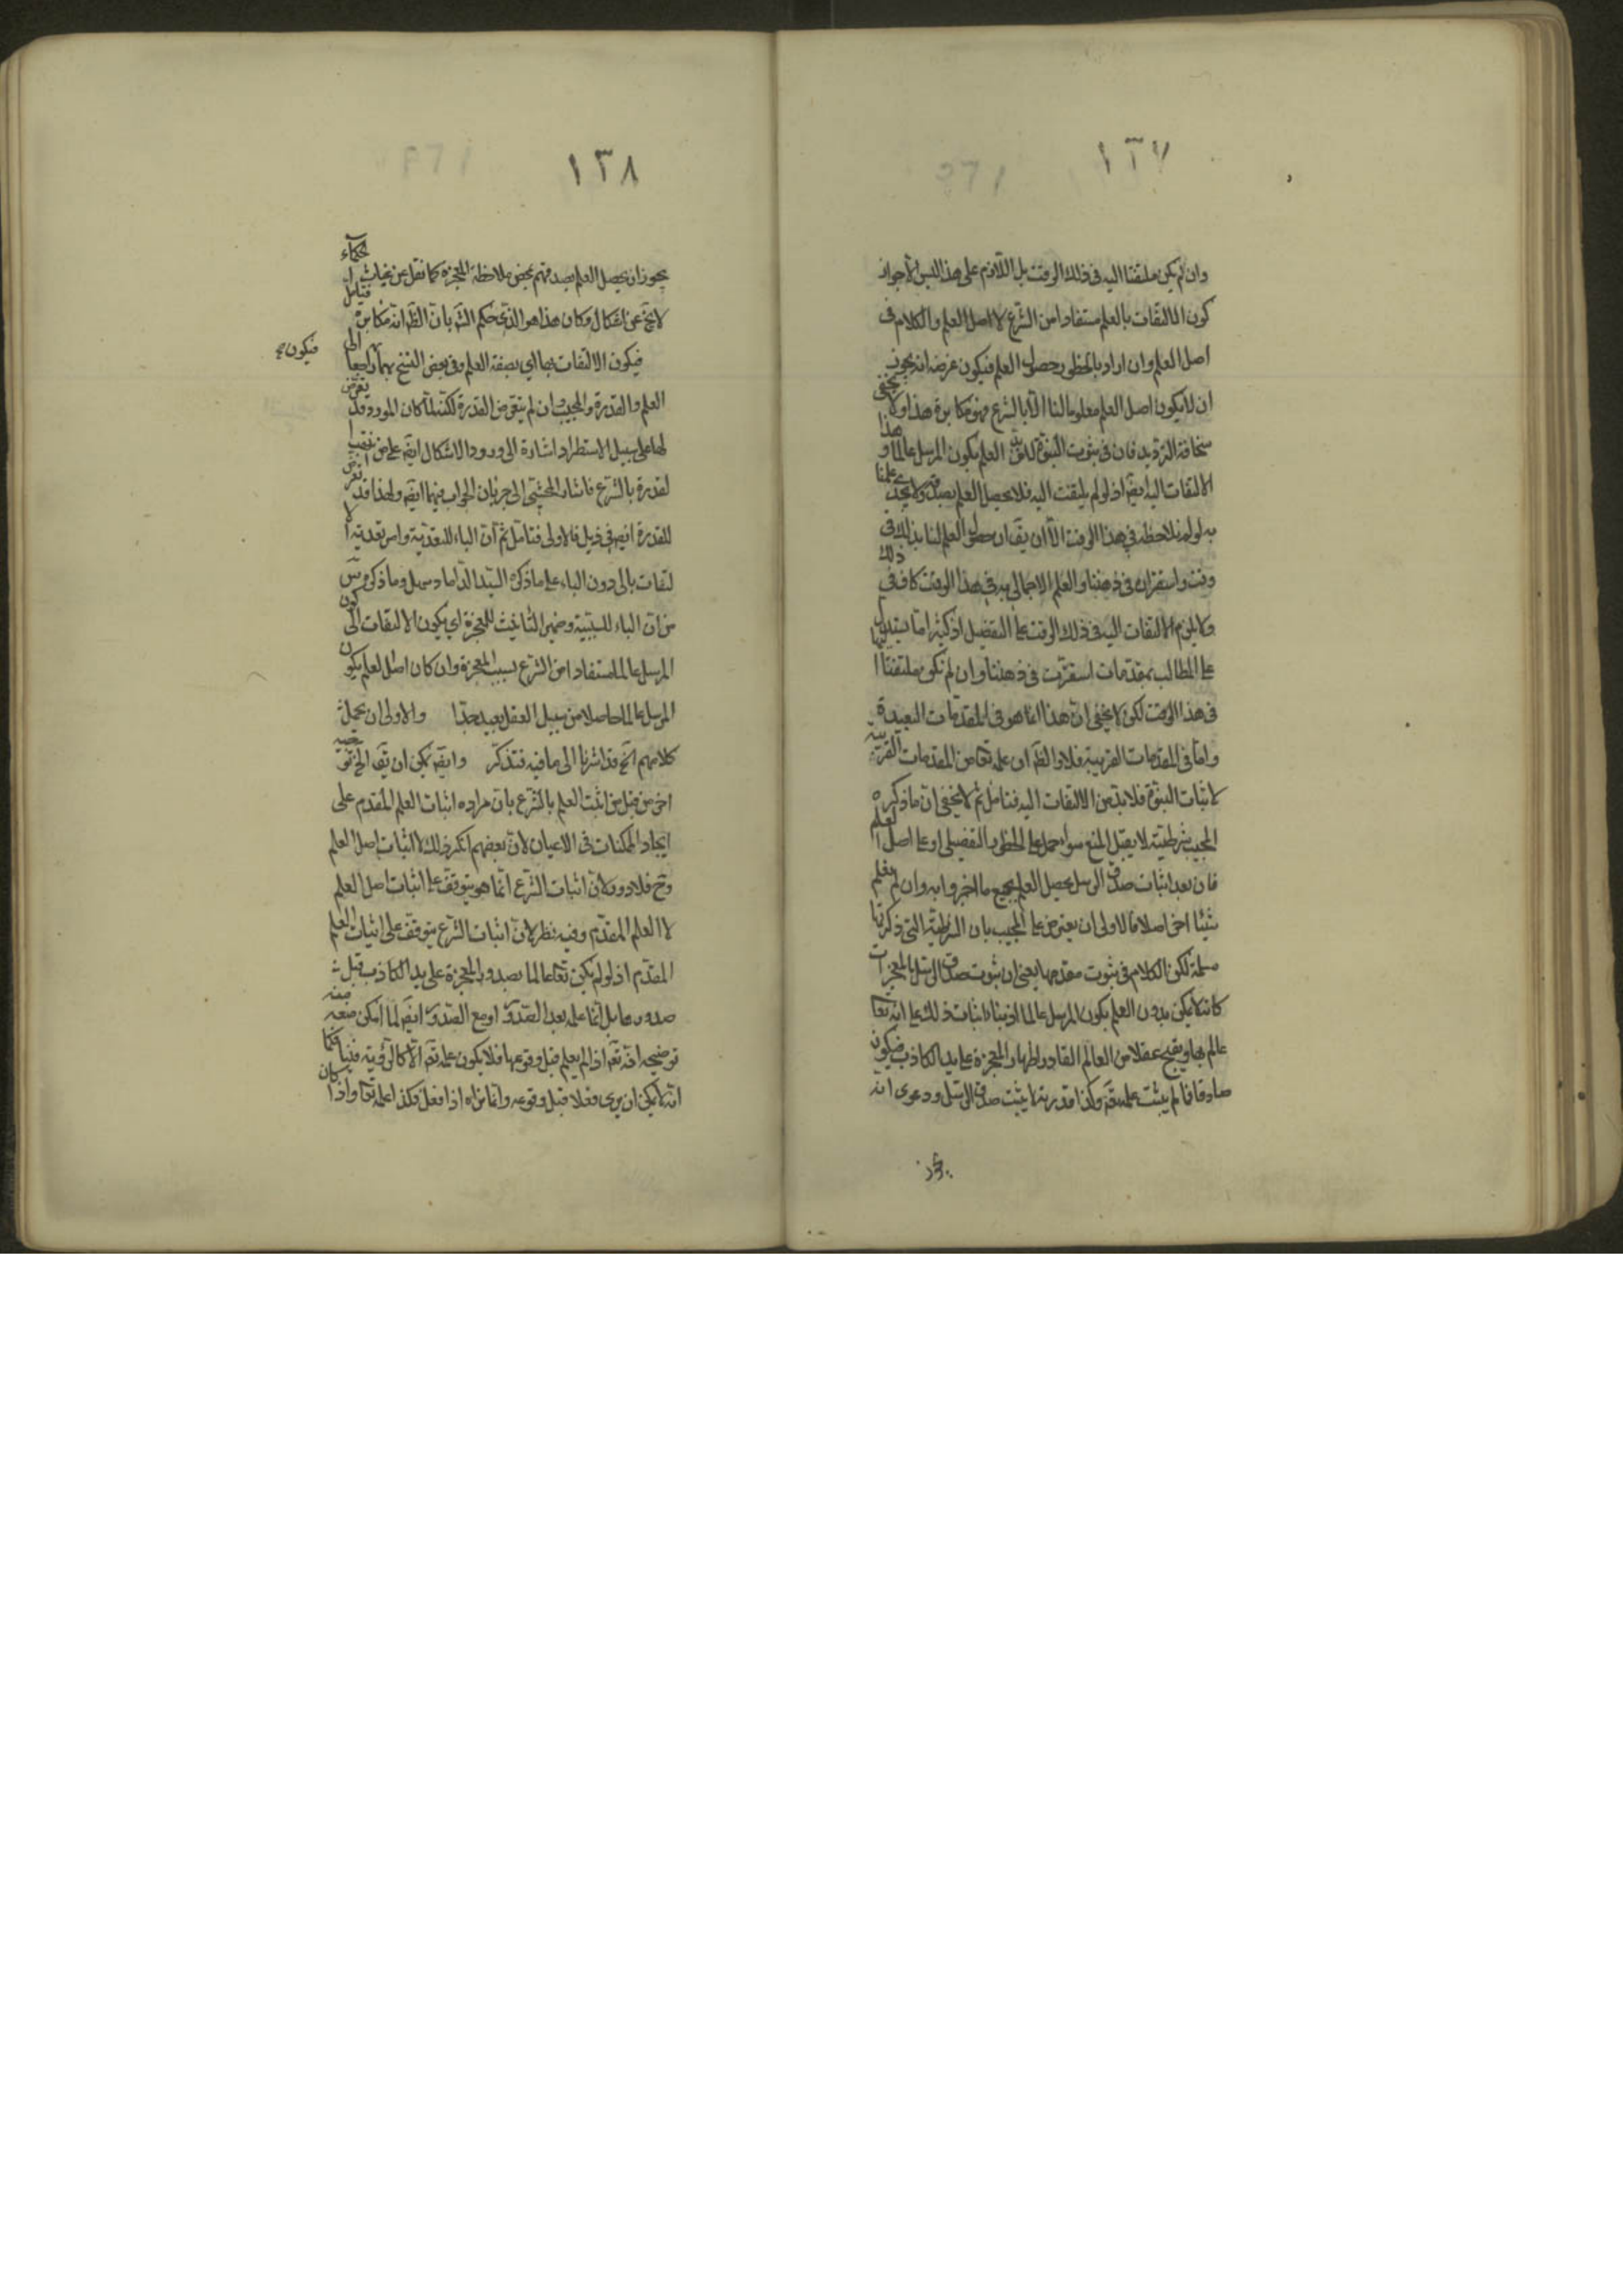 ١٣٧
وان لم يكن ملتفتا اليه فى ذلك الوقت بل اللازم على هذا ليس الا جواز
كون الالتفات بالعلم مستفادا من الشرع لا اصل العلم والكلام فى
اصل العلم وان اراد بالخطور حصول العلم فيكون غرضه انه يجوز
ان لا يكون اصل العلم معلوما لنا الا بالشرع فهو مكابرة هذا ولا يخفى
سخافة الترديد فان فى ثبوت النبوة العلم بكون المرسل عالما و هذا
الالتفات اليه ايضا اذ لو لم يلتفت اليه فلا يحصل العلم بصدقه ولا يجدى علمنا
به لو لم نلاحظه فى هذا الوقت الا ان يقال حصول العلم لنا بذلك فى
وقت واستقراره فى ذهننا والعلم الاجمالى به فى هذا الوقت كاف فى ذلك
ولا يلزم الالتفات اليه فى ذلك الوقت على التفصيل اذ كثيرا ما يستدل
على المطالب بمقدمات استقرت فى ذهننا وان لم نكن ملتفتا اليها
فى هذا الوقت لكن لا يخفى ان هذا انما هو فى المقدمات البعيدة
واما فى المقدمات القريبة فلا والظ ان علمه تعا من المقدمات القريبة
لاثبات النبوة فلا بد من الالتفات اليه فتامل ثم لا يخفى ان ما ذكره
المجيب شرطية لا يقبل المنع سواء حمل على الخطور التفصيلى او على اصل العلم
فان بعد اثبات صدق الرسل يحصل العلم بجميع ما اخبروا به وان لم يعلم
شيئا اخر اصلا فالاولى ان يعترض على المجيب بان الشرطية التى ذكرتها
مسلمة لكن الكلام فى ثبوت مقدمها يعنى ان ثبوت صدق الرسل بالمعجزات
كانه لا يمكن بدون العلم بكون المرسل عالما اذ بناء اثبات ذلك على انه تعا
عالم بها ويقبح عقلا من العالم القادر اظهار المعجزة على يد الكاذب فيكون
صادقا فما لم يثبت علمه تع وكذا قدرته لا يثبت صدق الرسل ودعوى انه
يجوز
١٣٨
يجوز ان يحصل العلم بصدقهم بمحض ملاحظة المعجزة كما نقل عن الحكماء
لا يخ عن اشكال وكان هذا هو الذى حكم الش بان الظ انه مكابرة فتامل
فيكون الالتفات بها اى بصفة العلم وفى بعض النسخ بهما راجعا الى
العلم والقدرة والمجيب وان لم يتعرض للقدرة لكنه لما كان المورد قد تعرض
لها على سبيل الاستطراد اشارة الى ورود الاشكال ايض على من اثبت ا
لقدرة بالشرع فاشار المحشى الى جريان الجواب فيهما ايض ولهذا قد تعرض
للقدرة ايض فى ذيل فالاولى فتامل ثم ان الباء للتعدية وامر تعدية ا لا
لتفات بالى دون الباء على ما ذكره السيد الداماد سهل وما ذكره
من ان الباء للسببية وضمير التانيث للمعجزة اى يكون الالتفات الى كون
المرسل عالما مستفادا من الشرع بسبب المعجزة وان كان اصل العلم بكون
المرسل عالما حاصلا من سبيل العقل بعيد جدا والاولى ان يحمل
كلامهم الخ قد اشرنا الى ما فيه فتذكر وايض يمكن ان يق الخ توجيه
اخر من قبل من اثبت العلم بالشرع بان مراده اثبات العلم المقدم على
ايجاد الممكنات فى الاعيان لان بعضهم انكر ذلك لا اثبات اصل العلم
وح فلا دور لان اثبات الشرع انما هو يتوقف على اثبات اصل العلم
لا العلم المقدم وفيه نظر لان اثبات الشرع يتوقف على اثبات العلم
المقدم اذ لو لم يكن تعا عالما بصدور المعجزة على يد الكاذب قبل
صدورها بل انما علمه بعد الصدور او مع الصدور ايض لما امكن منعه منه
توضيحه انه تع اذا لم يعلم قبل وقوعها فلا يكون علمه تع الا كالرؤية فينا فكما
انه لا يمكن ان يرى فعلا قبل وقوعه وانما نراه اذا فعل فكذا علمه تعا واذا كان
فيكون